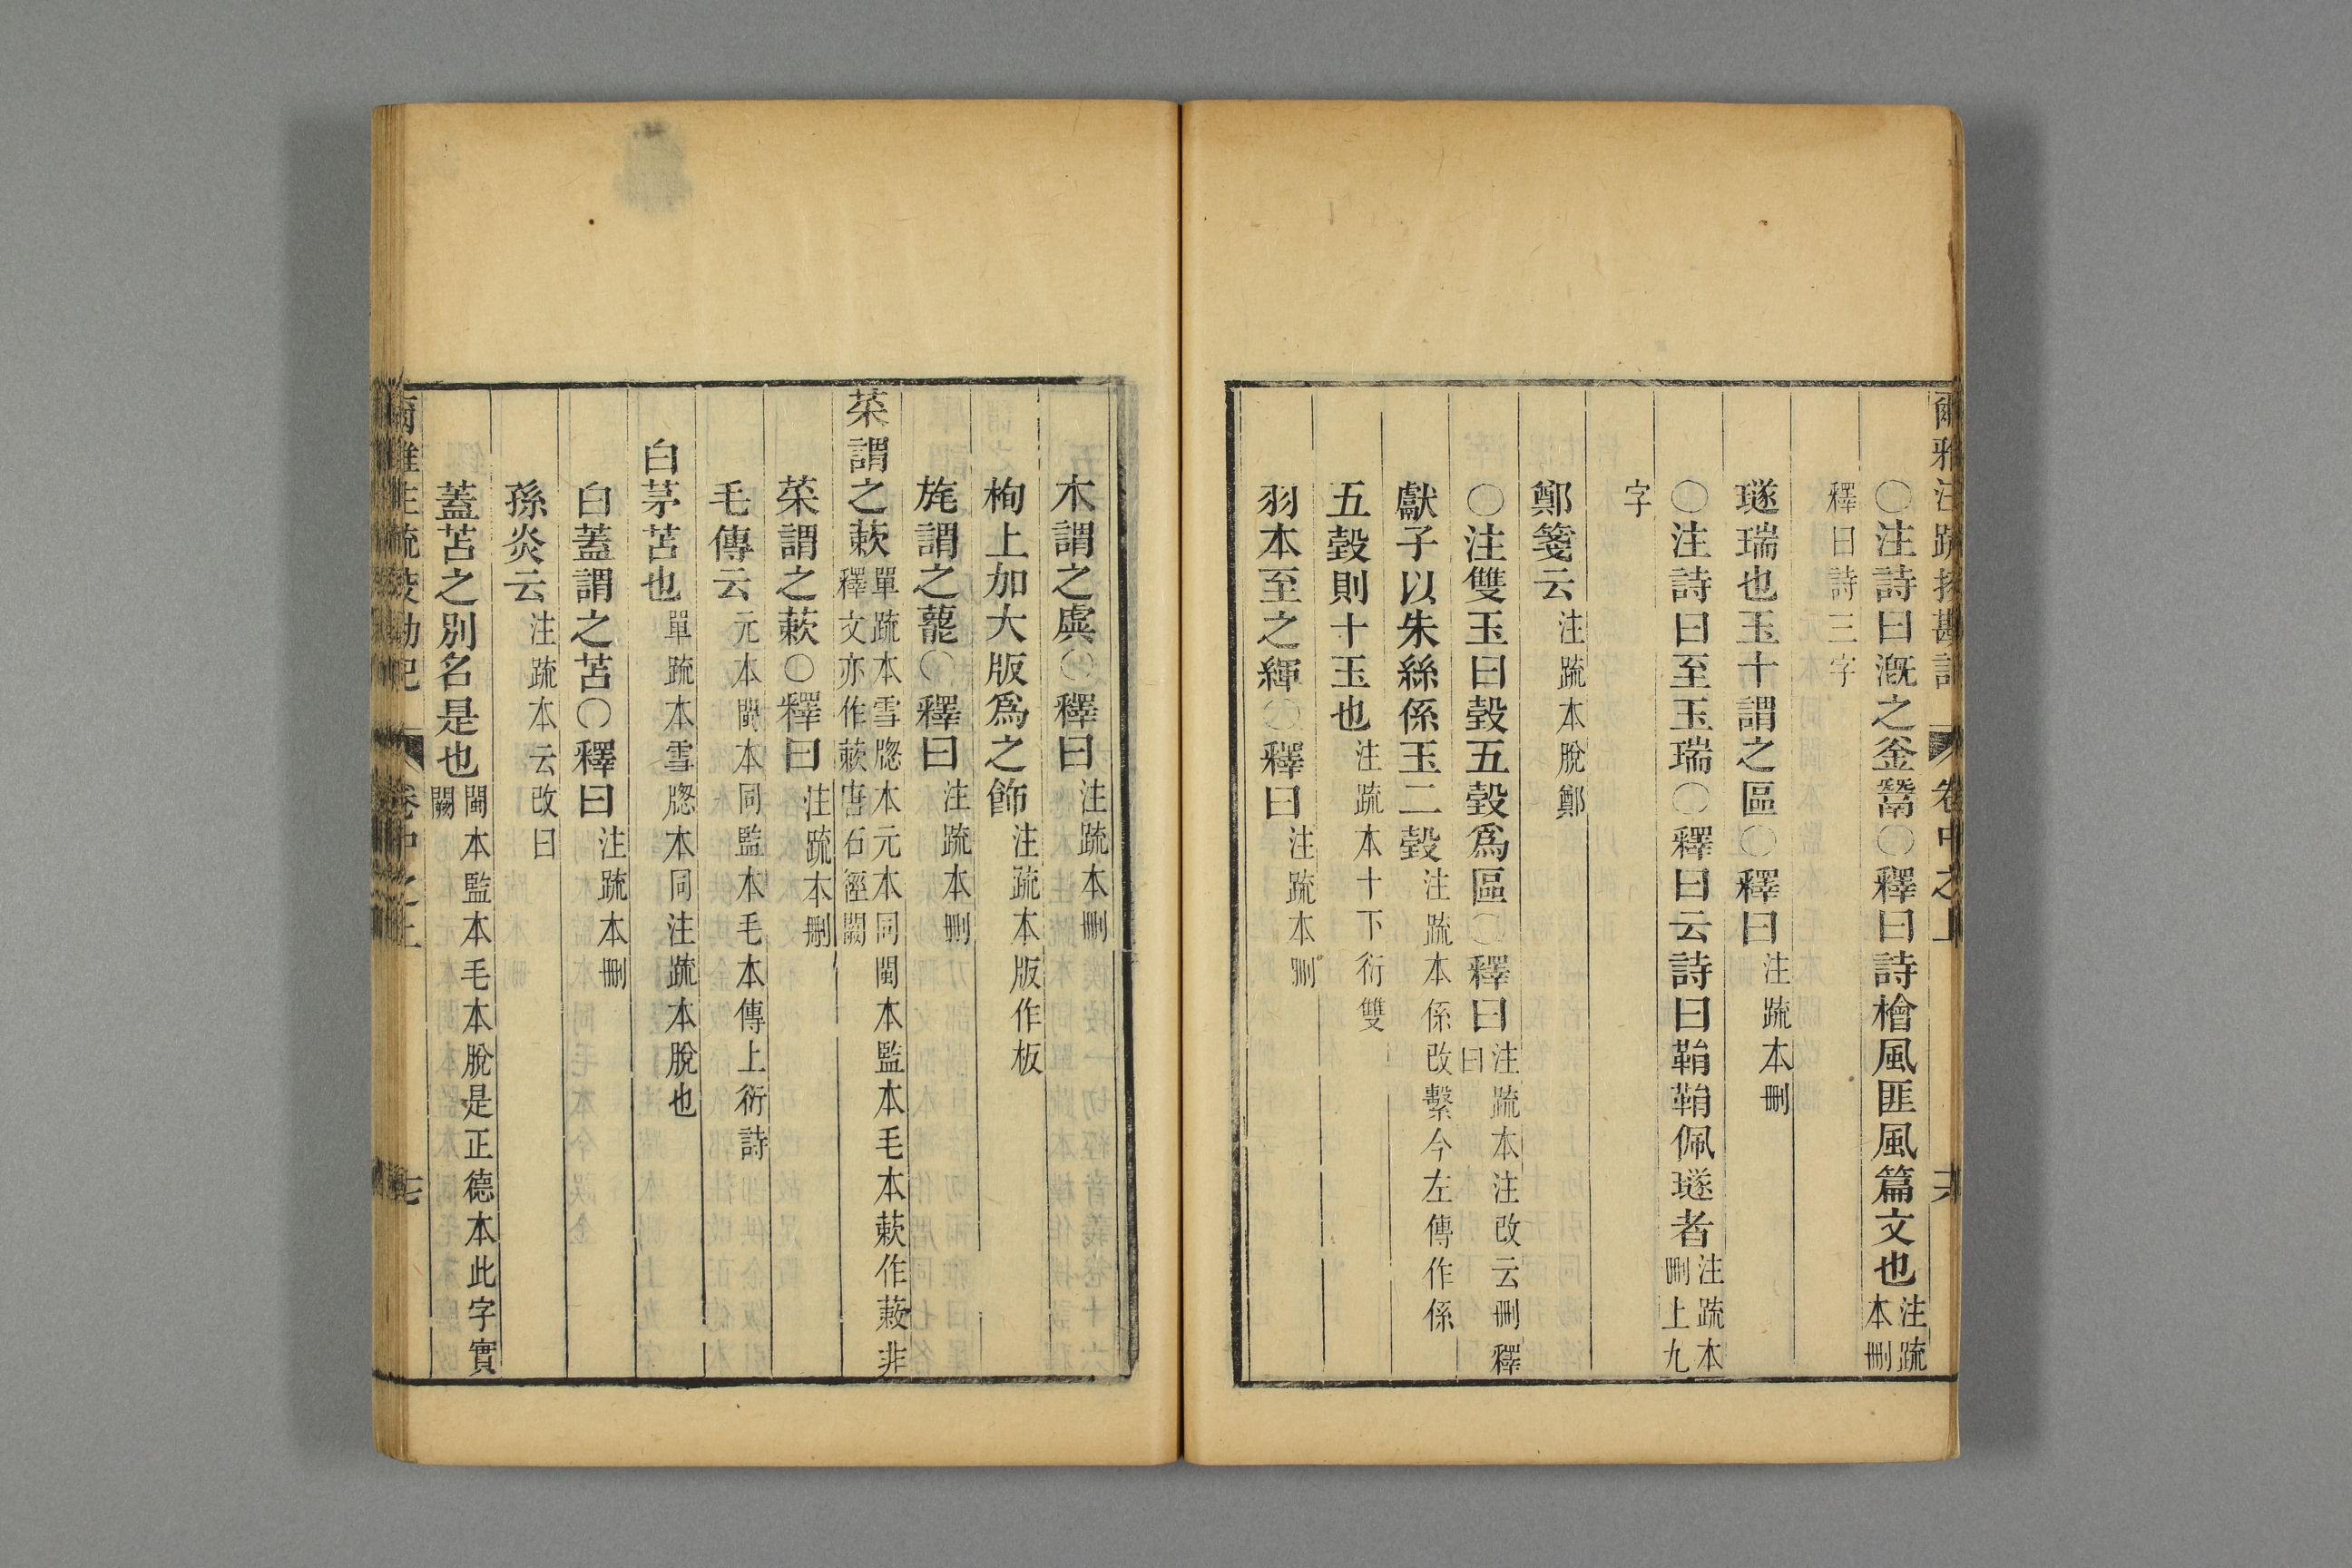 爾雅注疏挍勘記 卷中之上 六
〇注詩曰漑之釜鬵〇釋曰詩檜風匪風篇文也注疏本刪
釋曰詩三字
璲瑞也玉十謂之區〇釋曰注疏本刪
〇注詩曰至玉瑞〇釋曰云詩曰鞙鞙佩璲者注疏本刪上九
字
鄭箋云注疏本脫鄭
〇注雙玉曰瑴五瑴爲區〇釋曰注疏本注改云刪釋曰
獻子以朱絲係玉二瑴注疏本係改繫今左傳作係
五瑴則十玉也注疏本十下衍雙
羽本至之緷〇釋曰注疏本刪
木謂之虡〇釋曰注疏本刪
栒上加大版爲之飾注疏本版作板
旄謂之藣〇釋曰注疏本刪
菜謂之蔌單疏本雪牕本元本同閩本監本毛本蔌作蔌非釋文亦作蔌唐石經闕
菜謂之蔌〇釋曰注疏本刪
毛傳云元本閩本同監本毛本傳上衍詩
白茅苫也單疏本雪牕本同注疏本脫也
白蓋謂之苫〇釋曰注疏本刪
孫炎云注疏本云改曰
蓋苫之別名是也閩本監本毛本脫是正德本此字實闕
爾雅注疏挍勘記 卷中之上 七